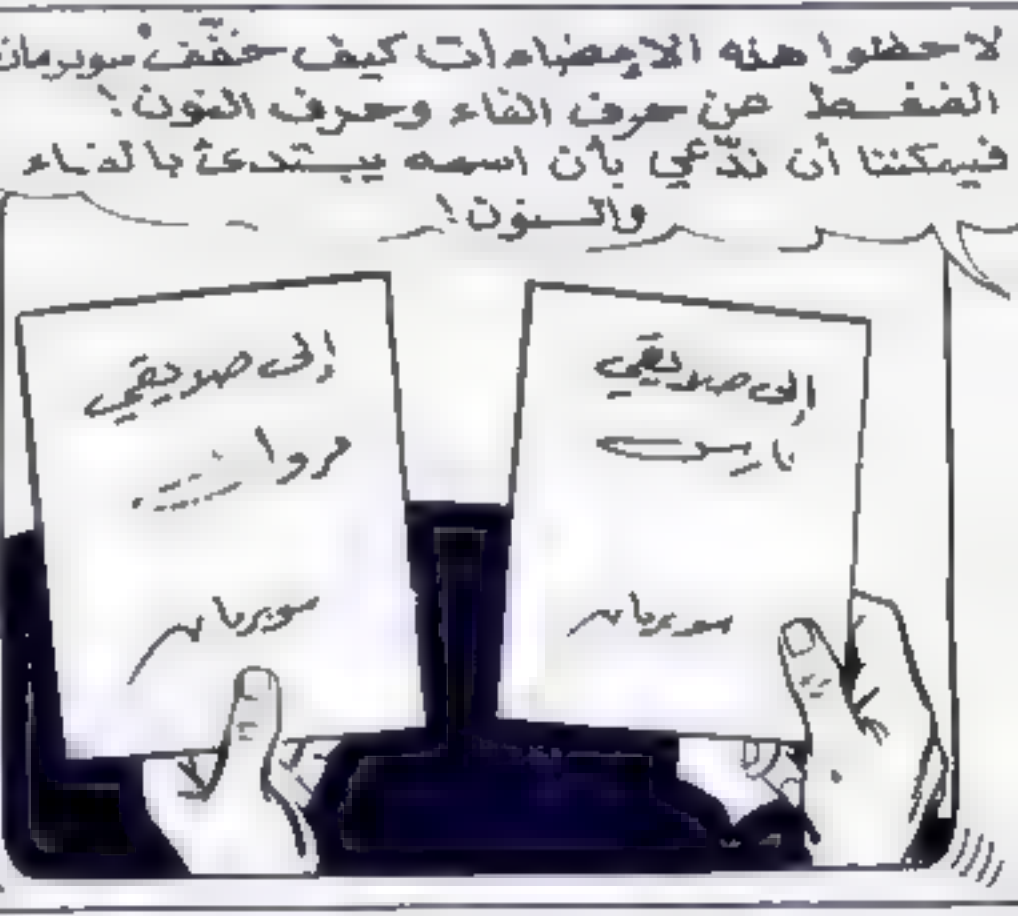 لاحظوا هذه الإمضاءات كيف خفّف سوبرمان
الضغط عن حرف الفاء وحرف النون!
فيمكننا أن ندّعي بأن اسمه يبتدئ بالفاء
والنون!
إلى صديقي
إلى صديقي
مروان
سوبرمان
سوبرمان